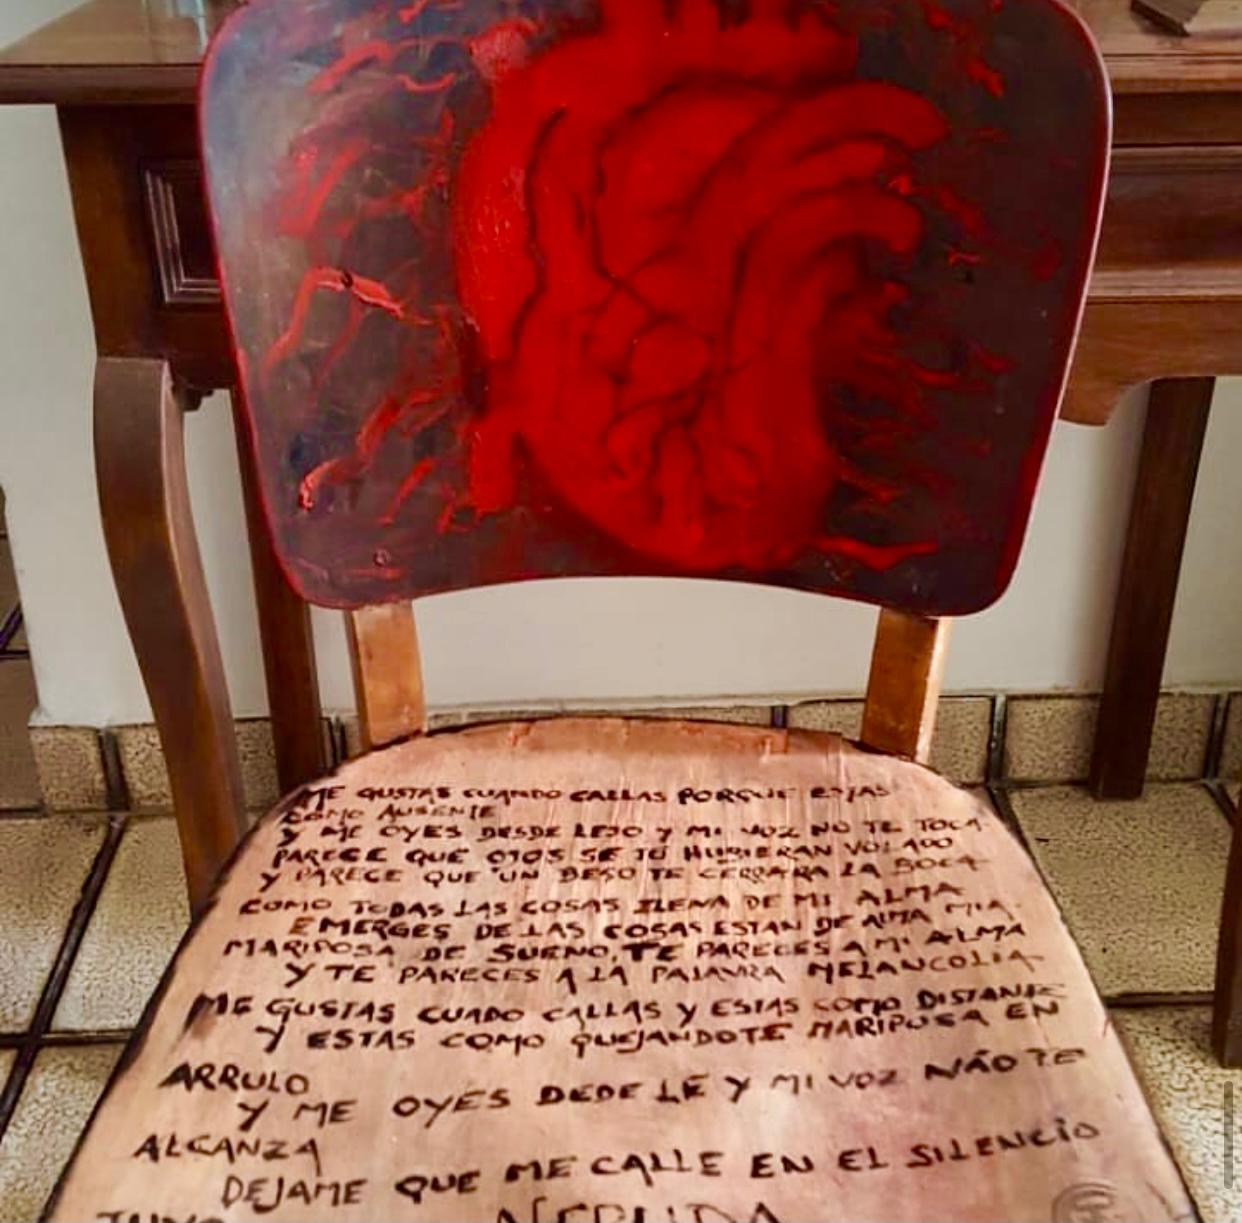 ME GUSTAS CUANDO CALLAS PORQUE
COMO AUSENTE
Y ME OYES DESDE LEJO Y MI VOZ NO TE TOCA
PARECE QUE OJOS SE TU HUBIERAN VOLADO
Y PARECE QUE UN BESO TE CERRARA LA BOCA
COMO TODAS LAS COSAS LLENA DE MI ALMA
EMERGES DE LAS COSAS ESTAN DE ALMA MIA
MARIPOSA DE SUENO, TE PARECES A MI ALMA
Y TE PARECES A LA PALAVRA MELANCOLIA
ME GUSTAS CUADO CALLAS Y ESTAS COMO DISTANTE
Y ESTAS COMO QUEJANDOTE MARIPOSA EN
ARRULO
Y ME OYES DEDE LE Y MI VOZ NÃO TE
ALCANZA
DEJAME QUE ME CALLE EN EL SILENCIO
NERUDA